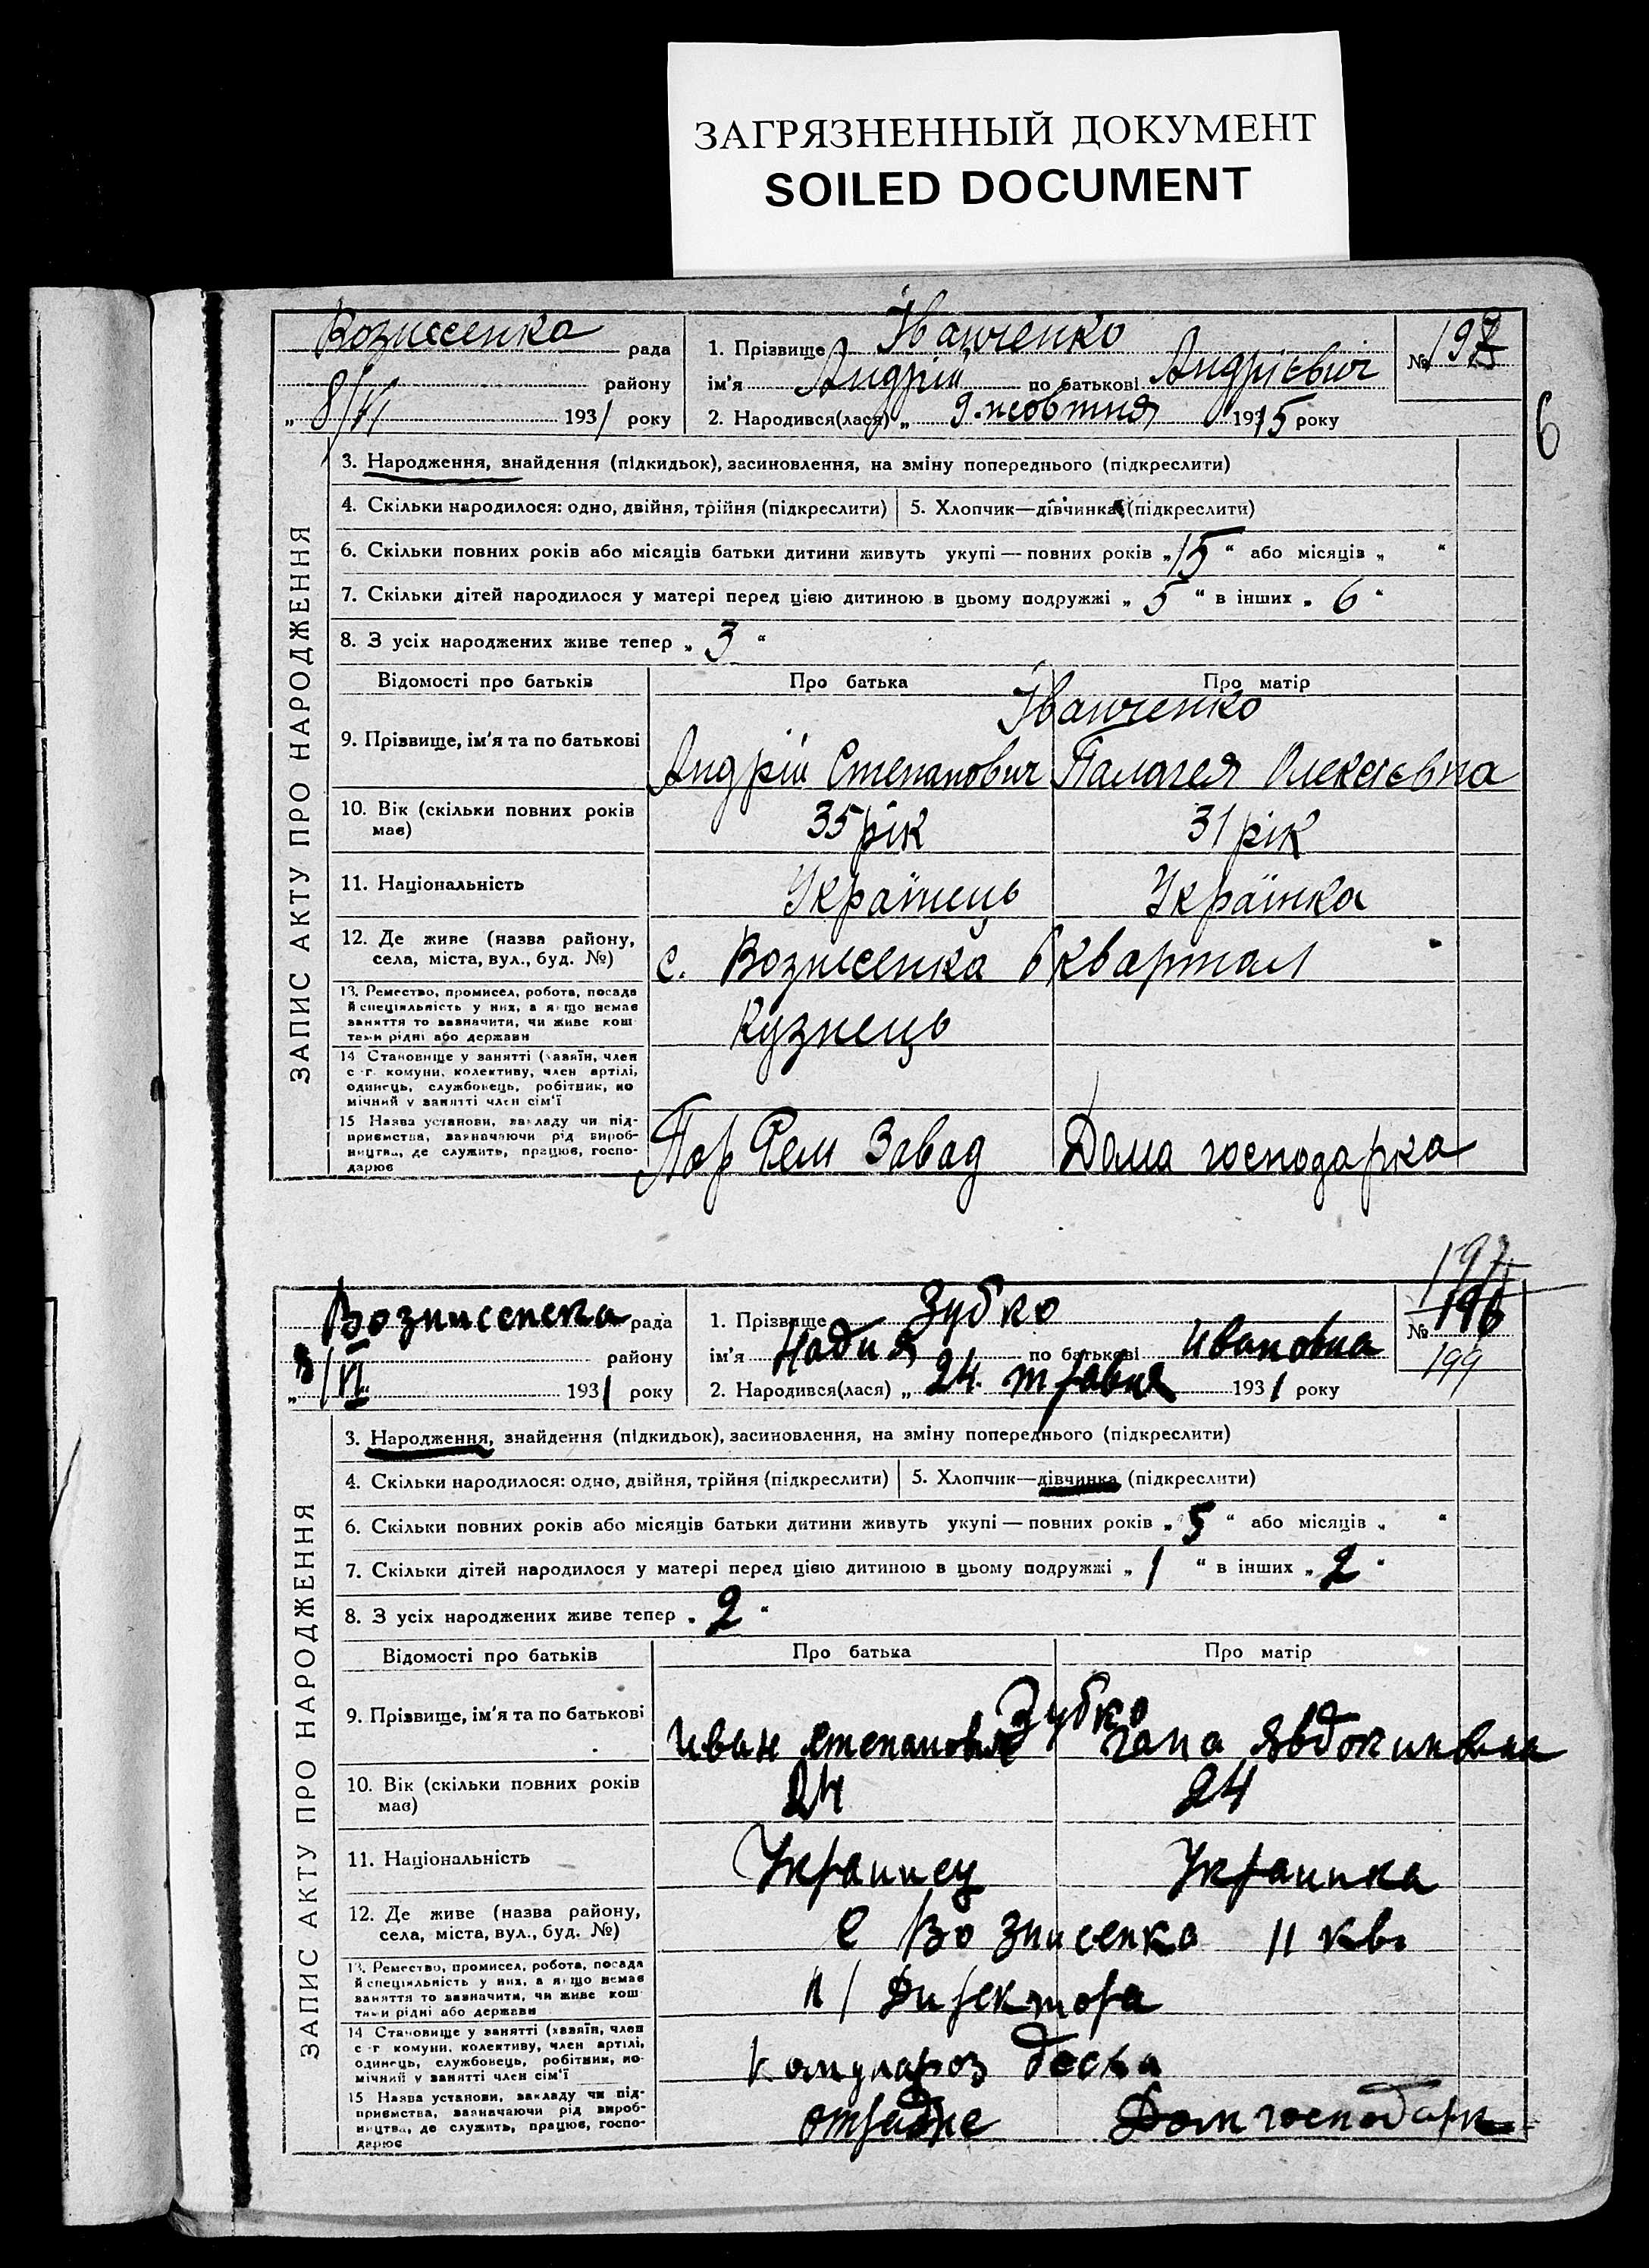 ЗАГРЯЗНЕННЫЙ ДОКУМЕНТ
SOILED DOCUMENT
6
ЗАПИС АКТУ ПРО НАРОДЖЕННЯ
Вознесенка рада
району
„ 8/VI 1931 року
1. Прізвище Іванченко
ім'я Андрій по батькові Андрієвич
2. Народився(лася) „ 9. жовтня 1915 року
№ 198
3. Народження, знайдення (підкидьок), засиновлення, на зміну попереднього (підкреслити)
4. Скільки народилося: одно, двійня, трійня (підкреслити) 5. Хлопчик—дівчинка (підкреслити)
6. Скільки повних років або місяців батьки дитини живуть укупі — повних років „ 15 “ або місяців „ “
7. Скільки дітей народилося у матері перед цією дитиною в цьому подружжі „ 5 “ в інших „ 6 “
8. З усіх народжених живе тепер „ 3 “
Відомості про батьків Про батька Про матір
Іванченко
9. Прізвище, ім'я та по батькові Андрій Степанович Палагея Олексієвна
10. Вік (скільки повних років має) 35 рік 31 рік
11. Національність Українець Українка
12. Де живе (назва району, села, міста, вул., буд. №) с. Вознесенка 6 квартал
13. Ремество, промисел, робота, посада й спеціяльність у них, а якщо немає заняття то зазначити, чи живе коштами рідні або держави Кузнець
14 Становище у занятті (хазяїн, член с.-г. комуни, колективу, член артілі, одинець, службовець, робітник, помічний у занятті член сім'ї
15 Назва установи, закладу чи підприємства, зазначаючи рід виробництва, де служить, працює, господарює Пар Рем Завад Дома господарка
ЗАПИС АКТУ ПРО НАРОДЖЕННЯ
Вознисенка рада
району
„ 8/VI 1931 року
1. Прізвище Зубко
ім'я Надия по батькові Ивановна
2. Народився(лася) „ 24. травня 1931 року
197
№ 196
199
3. Народження, знайдення (підкидьок), засиновлення, на зміну попереднього (підкреслити)
4. Скільки народилося: одно, двійня, трійня (підкреслити) 5. Хлопчик—дівчинка (підкреслити)
6. Скільки повних років або місяців батьки дитини живуть укупі — повних років „ 5 “ або місяців „ “
7. Скільки дітей народилося у матері перед цією дитиною в цьому подружжі „ 1 “ в інших „ 2 “
8. З усіх народжених живе тепер „ 2 “
Відомості про батьків Про батька Про матір
Зубко
9. Прізвище, ім'я та по батькові Иван Степанович Гапа Явдокимовна
10. Вік (скільки повних років має) 24 24
11. Національність Украинец Украинка
12. Де живе (назва району, села, міста, вул., буд. №) с Вознисенка 11 кв.
13. Ремество, промисел, робота, посада й спеціяльність у них, а якщо немає заняття то зазначити, чи живе коштами рідні або держави п/ Директора
14 Становище у занятті (хазяїн, член с.-г. комуни, колективу, член артілі, одинець, службовець, робітник, помічний у занятті член сім'ї
15 Назва установи, закладу чи підприємства, зазначаючи рід виробництва, де служить, працює, господарює Дом господарк